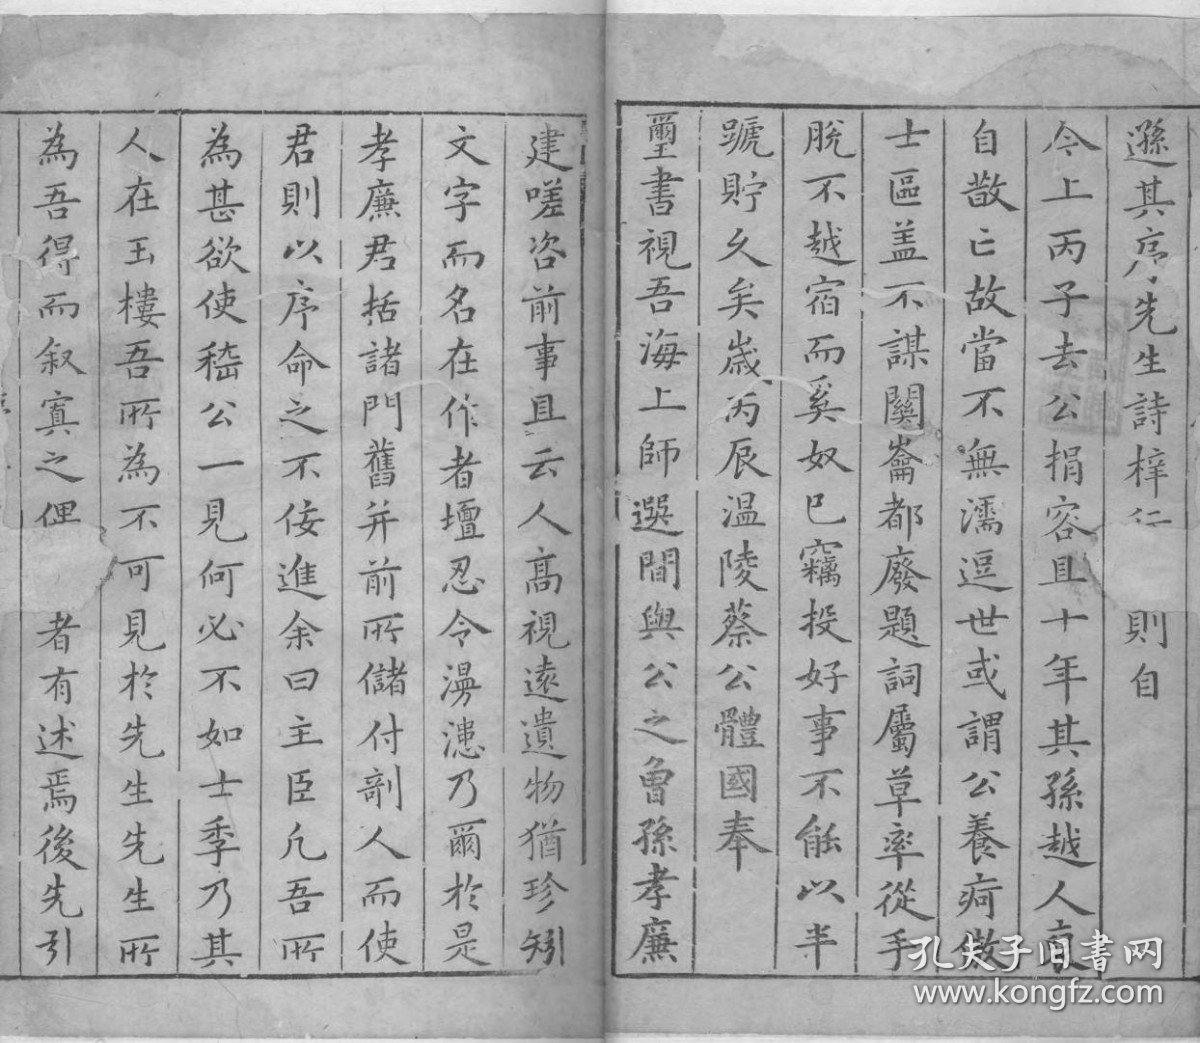 遜其序先生詩梓行則自
今上丙子去公捐容且十年其孫越人裒
自散亡故當不無濡逗世或謂公養疴傲
士區盖不謀闕崙都廢題詞屬草率從手
脫不越宿而奚奴已竊投好事不能以半
蹏貯久矣歲丙辰温陵蔡公體國奉
璽書視吾海上師選間與公之曾孫孝廉
建嗟咨前事且云人髙視逺遺物猶珍矧
文字而名在作者壇忍令漫漶乃爾於是
孝廉君括諸門舊并前所儲付剞人而使
君則以序命之不佞進余曰主臣凢吾所
為甚欲使嵇公一見何必不如士季乃其
人在玉樓吾所為不可見於先生先生所
為吾得而叙寘之俚者有述焉後先引
孔夫子旧书网
www.kongfz.com